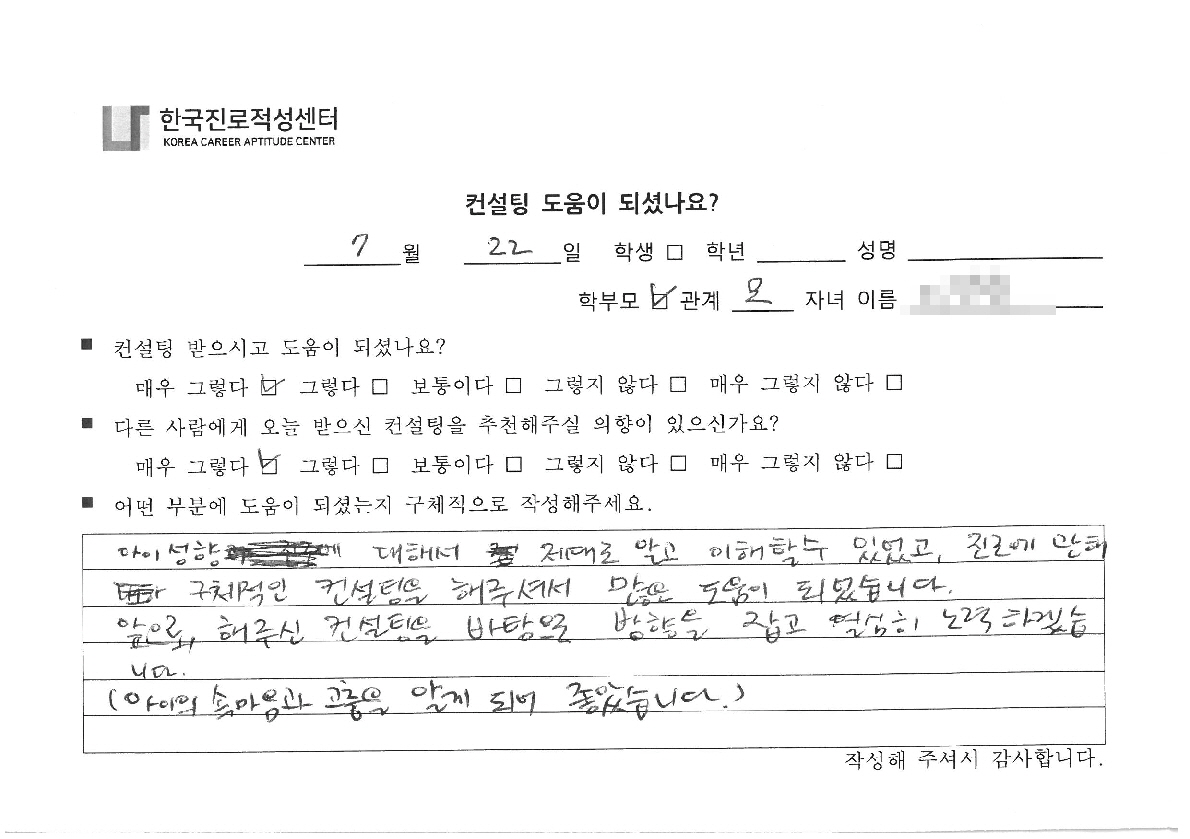 한국진로적성센터
KOREA CAREER APTITUDE CENTER
컨설팅 도움이 되셨나요?
7 월 22 일 학생 □ 학년 성명
학부모 ☑ 관계 모 자녀 이름
■ 컨설팅 받으시고 도움이 되셨나요?
매우 그렇다 ☑ 그렇다 □ 보통이다 □ 그렇지 않다 □ 매우 그렇지 않다 □
■ 다른 사람에게 오늘 받으신 컨설팅을 추천해주실 의향이 있으신가요?
매우 그렇다 ☑ 그렇다 □ 보통이다 □ 그렇지 않다 □ 매우 그렇지 않다 □
■ 어떤 부분에 도움이 되셨는지 구체적으로 작성해주세요.
아이 성향에 대해서 제대로 알고 이해할수 있었고, 진로에 관해
구체적인 컨설팅을 해주셔서 많은 도움이 되었습니다.
앞으로, 해주신 컨설팅을 바탕으로 방향을 잡고 열심히 노력하겠습
니다.
(아이의 속마음과 고충을 알게 되어 좋았습니다.)
작성해 주셔시 감사합니다.